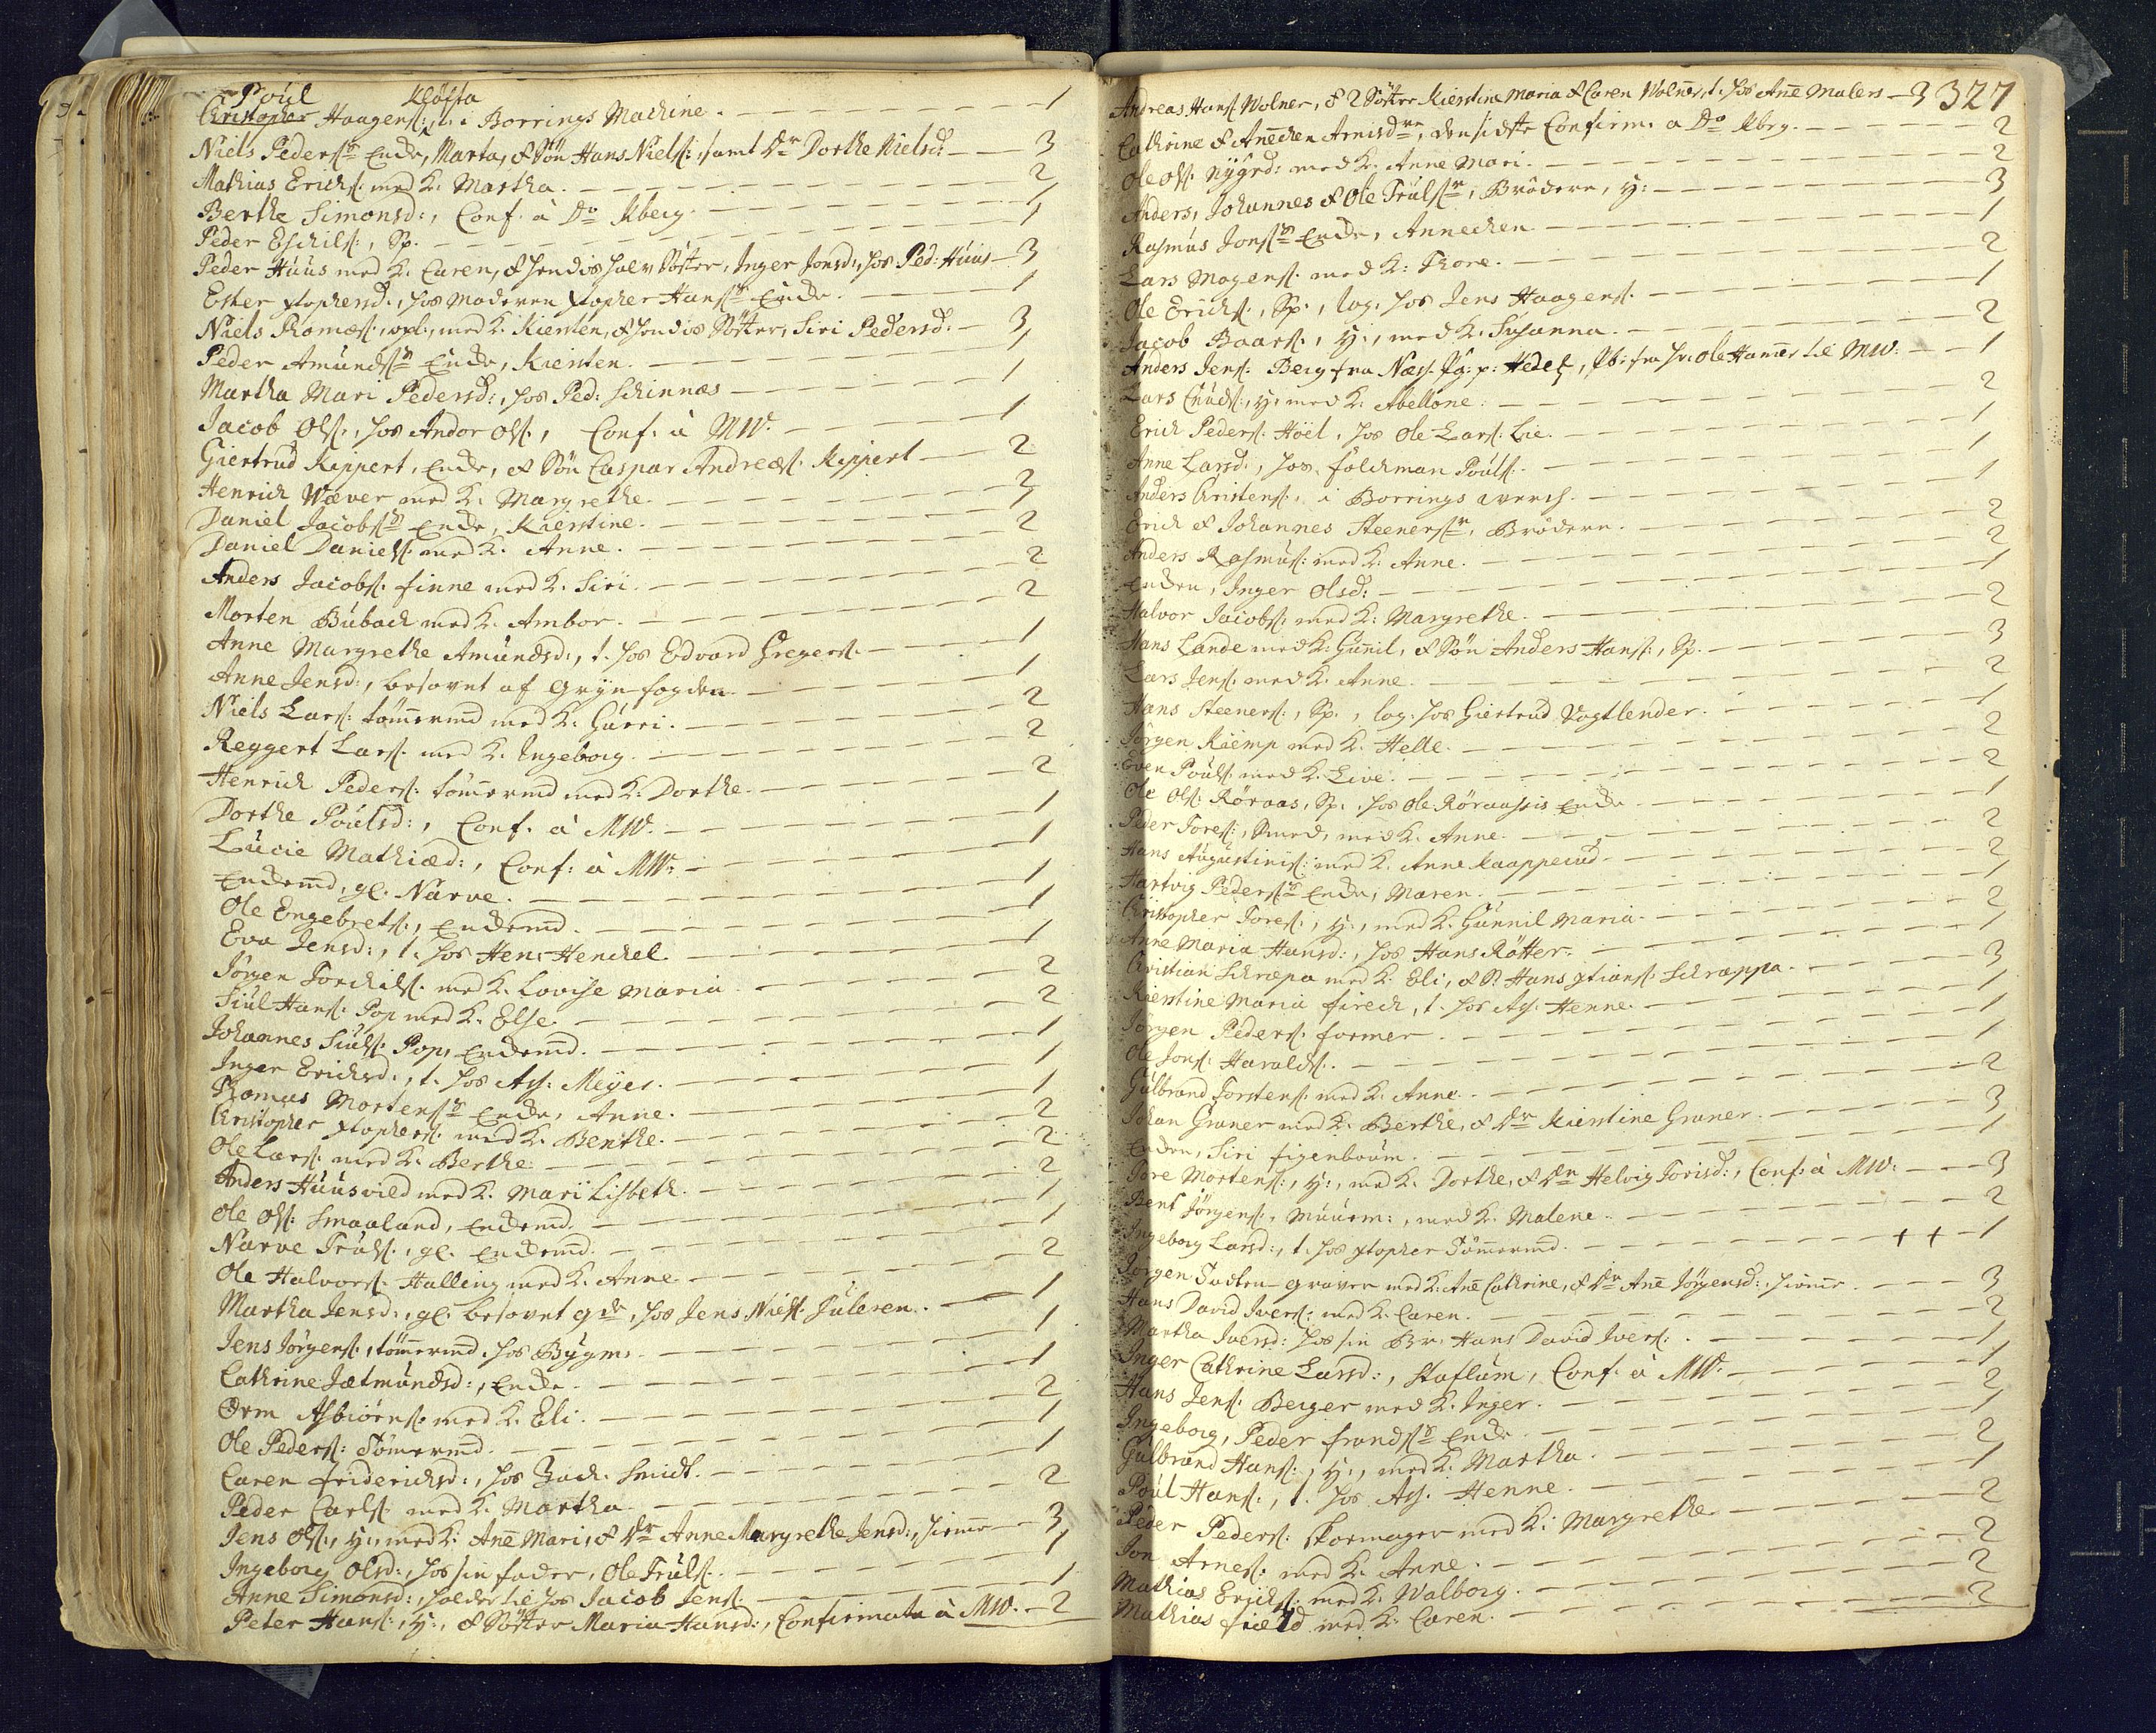 Poul Kløfta
Christopher Haagenß:, t. i Borrings Machine. 1
Niels Pederßns Enke, Marta, & Søn Hans Nielß:, samt dr Dorthe Nielsd: 3
Mathias Erichß. med K. Martha. 2
Berthe Simonsd:, Conf. à Do Kberg. 1
Peder Eschilß:, Sp. 1
Peder Huus med K. Caren, & hendis halv Søster, Inger Jonsd:, hos Ped: Huus 3
Ester xtophersd., hos Moderen xtopher Hanßns Enke. 1
Niels Thomæß., med K. Kiersten, & hendis Søster, Siri Pedersd: 3
Peder Amundßns Enke, Kiersten. 1
Martha Mari Pedersd:, hos Ped: Schinnæs 1
Jacob Olß., hos Andor Olß., Conf. à MW. 1
Giertrud Kippert, Enke, & Søn Caspar Andreæß. Kippert 2
Henrich Wæver med K. Margrethe. 2
Daniel Jacobßns Enke, Kierstine. 1
Daniel Danielß. med K. Anne. 2
Anders Jacobß. finne med K. Siri. 2
Morten Bubach med K. Ambor. 2
Anne Margrethe Amundsd:, t. hos Edvard Gregerß. 1
Anne Jensd:, besovet af Gryn fogden. 1
Niels Larß. tømmermd med K. Gurri. 2
Reggert Larß. med K. Ingeborg. 2
Henrich Pederß. tømmermd med K. Dorthe. 2
Dorthe Poulsd:, Conf. à MW. 1
Lucie Mathiæd:, Conf: à MW: 1
Enkemd, gl. Narve. 1
Ole Engebretß., Enkemd. 1
Eva Jensd:, t. hos Hen: Henchel. 1
Jørgen Torchilß. med K. Lovise Maria. 2
Siul Hanß. Pop med K. Else. 2
Johannes Siulß. Pop, Enkemd. 1
Inger Erichsd:, t. hos Aß. Meyer. 1
Thomas Mortenßns Enke, Anne. 1
Christopher xtopherß. med K. Benthe. 2
Ole Larß. med K. Berthe. 2
Anders Huusvild med K. Mari Lisbeth. 2
Ole Olß: Smaaland, Enkemd. 1
Narve Trulß., gl. Enkemd. 1
Ole Halvorß. Halling med K. Anne. 2
Martha Jensd:, gl. besovet qde, hos Jens Nielß. Puleren. 1
Jens Jørgenß., tømmermd. hos Bygm. 1
Cathrine Jætmundsd:, Enke. 1
Orm Asbiørnß. med K. Eli. 2
Ole Pederß: Tømermd. 1
Caren friderichsd:, hos Zach: Smidt. 1
Peder Carlß. med K. Martha. 2
Jens Olß., H., med K. Ane Mari, & dr Anne Margrethe Jensd:, hieme 3
Ingeborg Olsd:, hos sin fader, Ole Trulß. 1
Anne Simonsd:, holder til hos Jacob Jenß. 1
Peter Hanß., H:, & Søster Maria Hansd:, Confirmata à MW. 2
327
Andreas Hanß. Wolner, & 2 Søstre Kierstine Maria & Caren Wolner, t. hos Ane Malers 3
Cathrine & Anecken Arnisdtre, den sidste Confirm. à Do Kbrg. 2
Ole Olß. Nygrd: med K. Anne Mari. 2
Anders, Johannes & Ole Trulßr, Brødere, H: 3
Rasmus Jonßns Enke, Annecken 1
Lars Mogenß. med K: Thore. 2
Ole Erichß., Sp., log. hos Jens Haagenß. 1
Jacob Baarß., H., med K. Susanna. 2
Anders Jenß. Berg fra Næs. Pg: p: Hedeß, Pb: fra Hr. Ole Hamer til MW: 1
Lars Cnudß., H, med K. Abellone. 2
Erich Pederß. Høel, hos Ole Larß. Lie. 1
Anne Larsd:, hos folchman Poulß. 1
Anders Christenß. i Borrings werch. 1
Erich & Johannes Steenerßr, Brødere. 2
Anders Rasmuß. med K. Anne. 2
Enken, Inger Olsd: 1
Halvor Jacobß. med K. Margrethe. 2
Hans Lande med K. Gunil, & Søn Anders Hanß., Sp. 3
Lars Jenß. med K. Anne. 2
Hans Steenerß., Sp., log. hos Giertrud Vogtlender. 1
Jørgen Kiemp med K. Helle. 2
Even Poulß. med K. Live. 2
Ole Olß. Røraas, Sp., hos Ole Røraaßis Enke. 1
Peder Toreß:, Smed, med K. Anne. 2
Hans Augustiniß: med K. Anne Kaapperud. 2
Hartvig Pederßns Enke, Maren. 1
Christopher Toreß., H., med K. Gunnil Maria. 2
Anne Maria Hansd:, hos Hans Røtter. 1
Christian Schræpa med K. Eli, & S. Hans xtianß. Schræppa. 3
Kierstine Maria firech, t. hos Aß. Henne. 1
Jørgen Pederß. former. 1
Ole Jonß. Haraldß. 1
Gulbrand Torstenß. med K. Anne. 2
Johan Graner med K. Berthe, & dr Kierstine Graner. 3
Enken, Siri figenboum. 1
Tore Mortenß., H:, med K. Dorthe, & dr Helvig Torisd:, Conf: à MW: 3
Bent Jørgenß., Muurm:, med K. Malene. 2
Ingeborg Larsd:, t. hos xtopher Tømermd. + + 1
Jørgen Sacken graver med K. Ane Cathrine, & dr Ane Jørgensd:, hieme 3
Hans David Iverß: med K. Caren. 2
Martha Iversd: hos sin Br. Hans David Iverß. 1
Inger Cathrine Larsd:, Staflum, Conf. à MW. 1
Hans Jenß. Berger med K. Inger. 2
Ingeborg, Peder frandßns Enke. 1
Gulbrand Hanß., H., med K. Martha. 2
Poul Hanß., t. hos Aß. Henne. 1
Peder Pederß. skomager med K. Margrethe. 2
Jon Arneß. med K. Anne. 2
Mathias Erichß. med K. Walborg. 2
Mathias field med K. Caren. 2